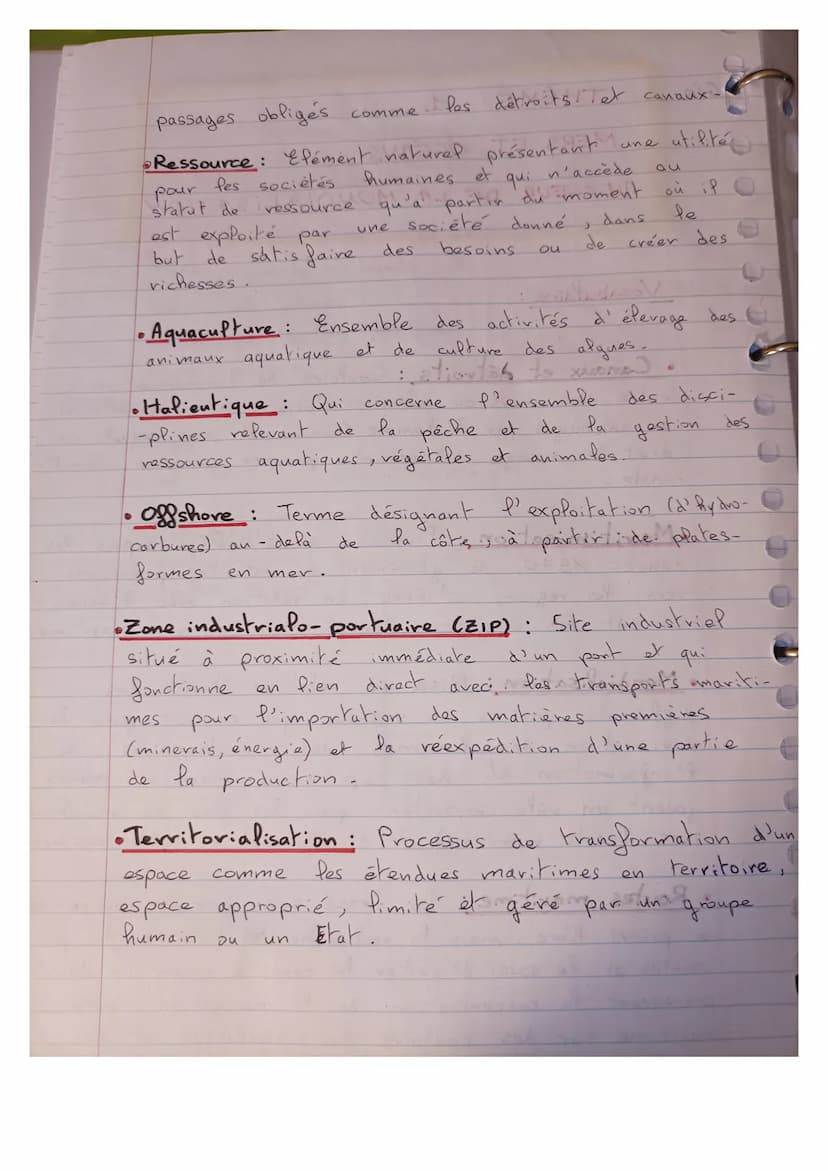 passages obligés comme les détroits et canaux.
• Ressource : Elément naturel présentant une utilité
pour les sociétés humaines et qui n'accède au
statut de ressource qu'à partir du moment où il
est exploité par une société donné, dans le
but de satisfaire des besoins ou de créer des
richesses.
• Aquaculture : Ensemble des activités d'élevage des
animaux aquatique et de culture des algues.
• Halieutique : Qui concerne l'ensemble des disci-
-plines relevant de la pêche et de la gestion des
ressources aquatiques, végétales et animales.
• Offshore : Terme désignant l'exploitation (d'hydro-
carbures) au-delà de la côte, à partir de plates-
formes en mer.
• Zone industrialo-portuaire (ZIP) : Site industriel
situé à proximité immédiate d'un port et qui
fonctionne en lien direct avec les transports mariti-
mes pour l'importation des matières premières
(minerais, énergie) et la réexpédition d'une partie
de la production.
• Territorialisation : Processus de transformation d'un
espace comme les étendues maritimes en territoire,
espace approprié, limité et géré par un groupe
humain ou un Etat.